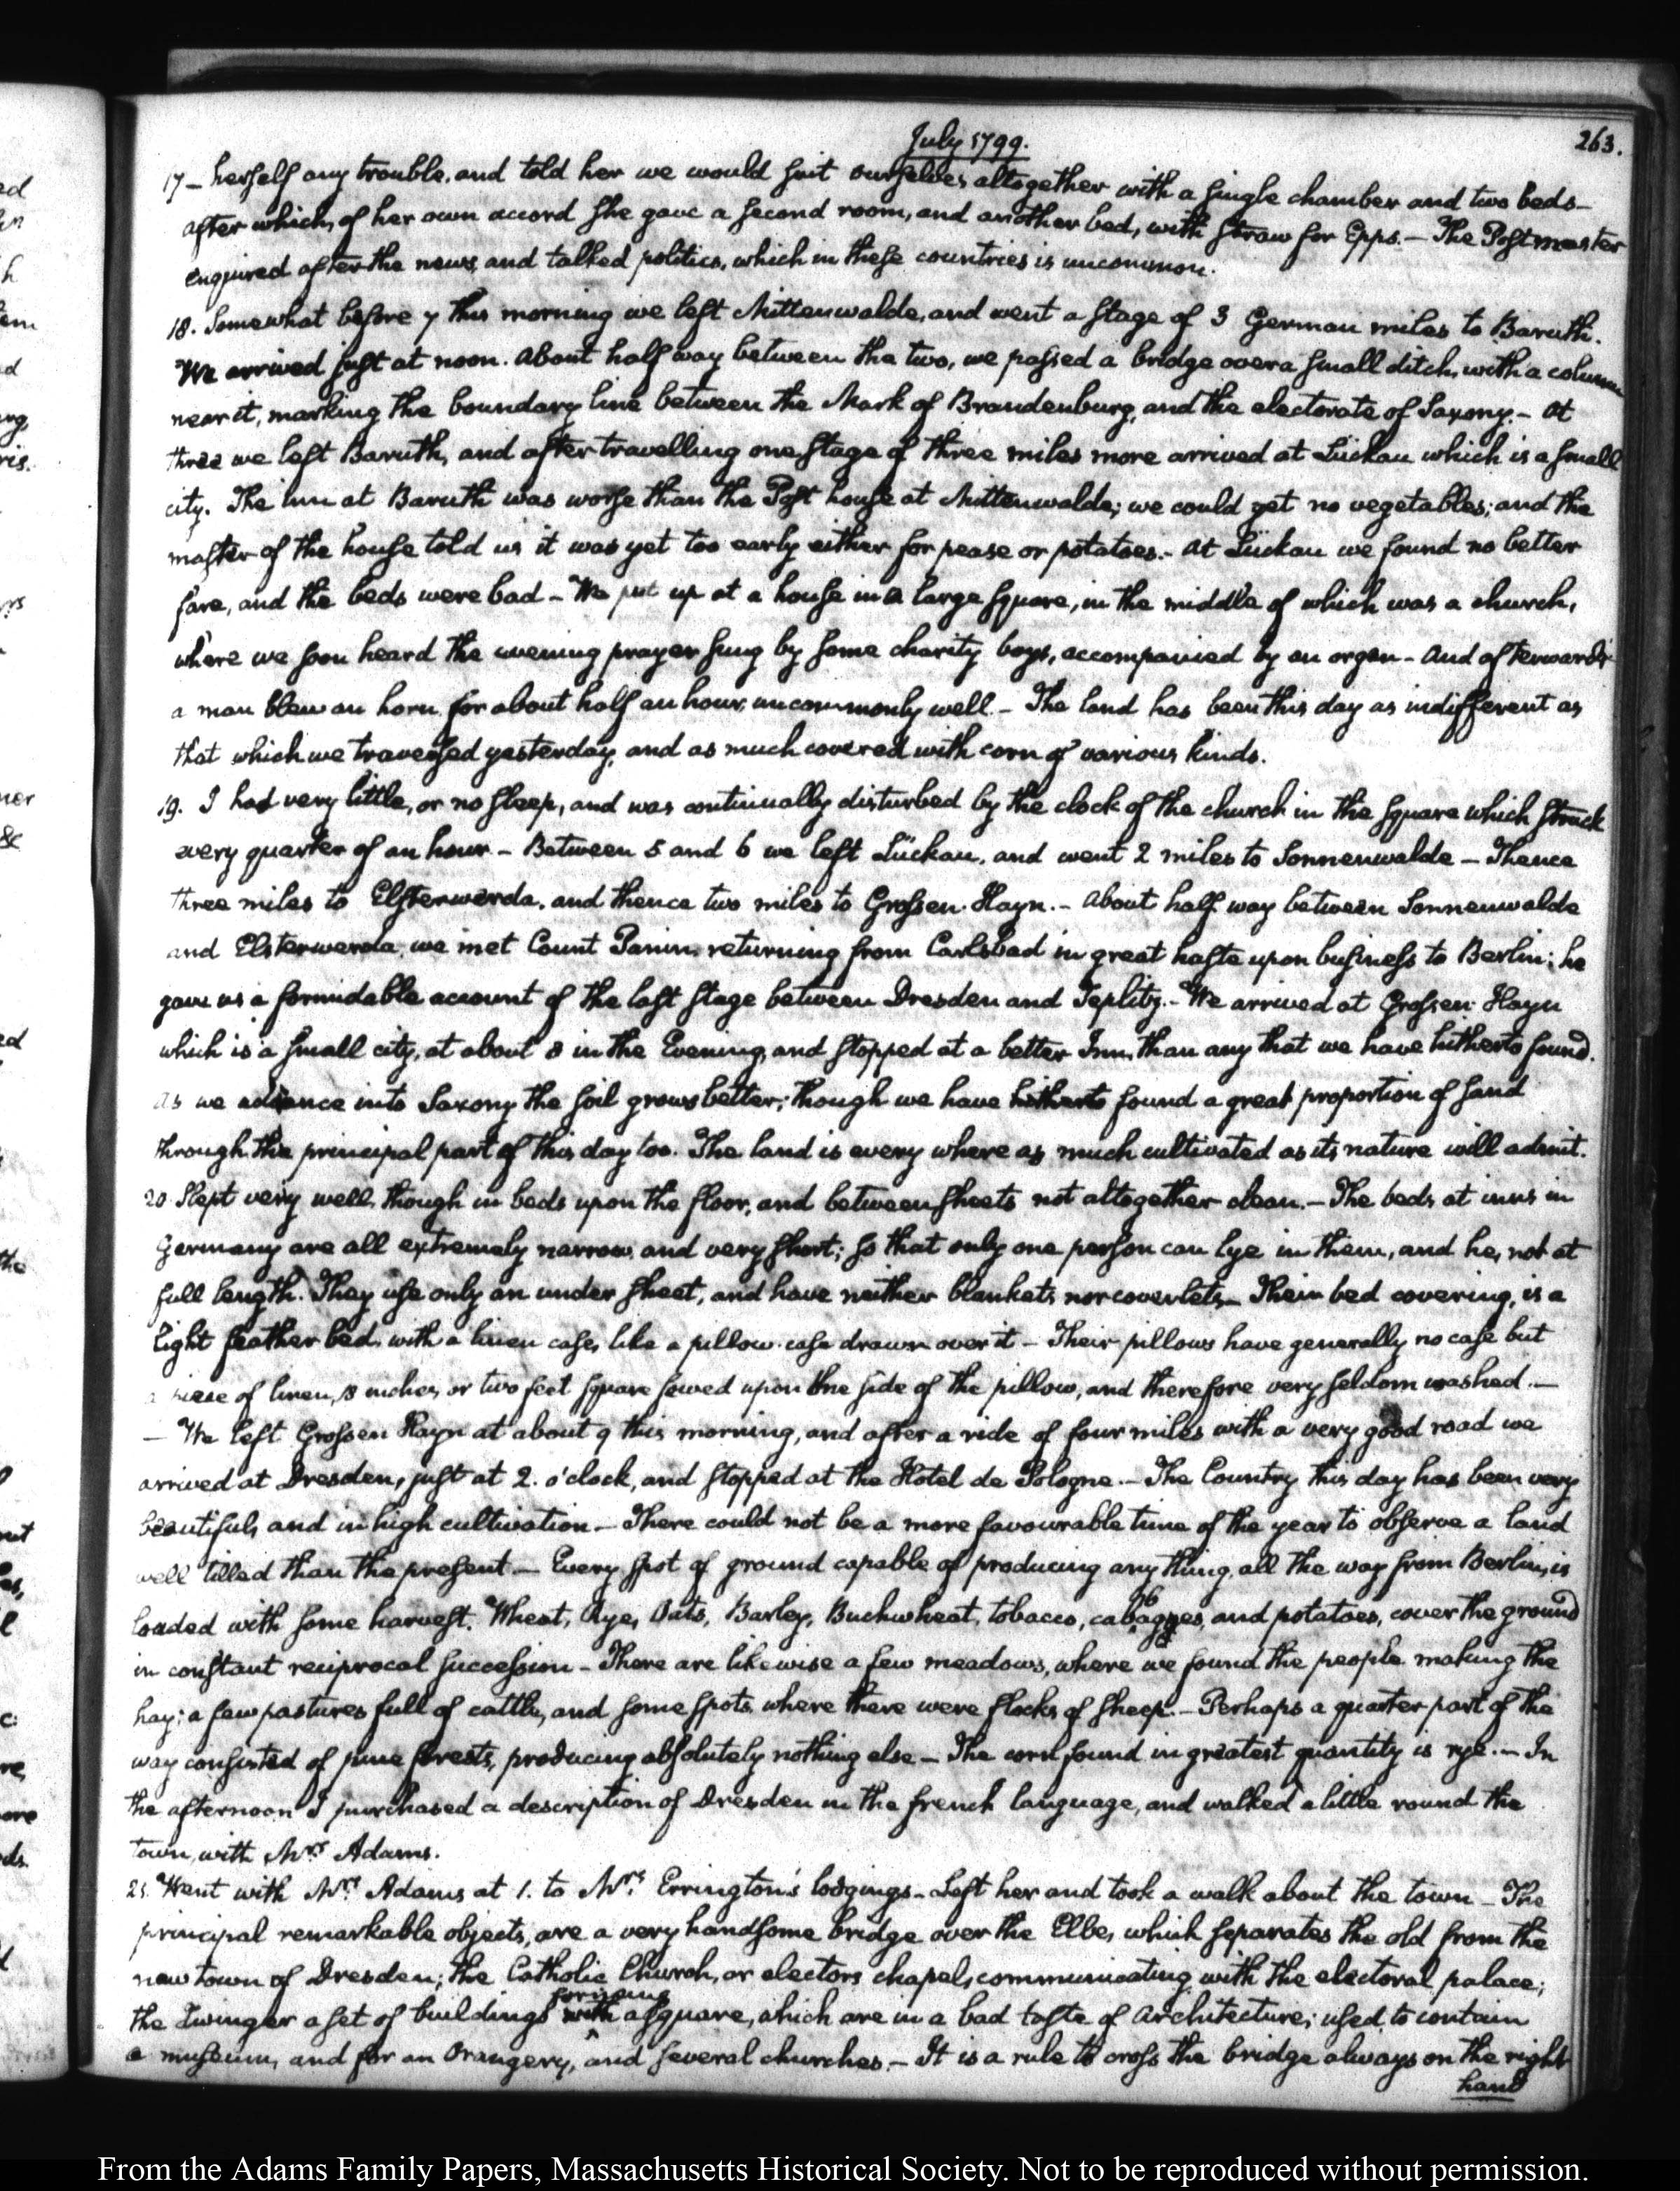 July 1799.
263.
17 – herself any trouble, and told her we would suit ourselves altogether with a single chamber and two beds –
after which, of her own accord she gave a second room, and another bed, with straw for Epps. – The Postmaster
enquired after the news, and talked politics, which in these countries is uncommon.
18. Somewhat before 7 this morning we left Mittenwalde, and went a stage of 3 German miles to Baruth.
We arrived just at noon. About half way between the two, we passed a bridge over a small ditch, with a column
near it, marking the boundary line between the Mark of Brandenburg, and the electorate of Saxony. – At
three we left Baruth, and after travelling one stage of three miles more arrived at Lückau which is a small
city. The inn at Baruth was worse than the Post house at Mittenwalde; we could get no vegetables; and the
master of the house told us it was yet too early either for pease or potatoes. – At Lückau we found no better
fare, and the beds were bad – We put up at a house in a large square, in the middle of which was a church,
where we soon heard the evening prayer sung by some charity boys, accompanied by an organ – And afterwards
a man blew an horn for about half an hour, uncommonly well. – The land has been this day as indifferent as
that which we traversed yesterday, and as much covered with corn of various kinds.
19. I had very little, or no sleep, and was continually disturbed by the clock of the church in the square which struck
every quarter of an hour – Between 5 and 6 we left Lückau, and went 2 miles to Sonnenwalde – Thence
three miles to Elsterwerda, and thence two miles to Grossen Hayn. – About half way between Sonnenwalde
and Elsterwerda, we met Count Panin, returning from Carlsbad in great haste upon business to Berlin; he
gave us a formidable account of the last stage between Dresden and Teplitz. – We arrived at Grossen Hayn
which is a small city, at about 8 in the Evening, and stopped at a better Inn, than any that we have hitherto found.
As we advance into Saxony the soil grows better; though we have hitherto found a great proportion of sand
through the principal part of this day too. The land is every where as much cultivated as its nature will admit.
20. Slept very well, though in beds upon the floor, and between sheets not altogether clean. – The beds at inns in
Germany are all extremely narrow, and very short; so that only one person can lye in them, and he, not at
full length. They use only an under sheet, and have neither blankets nor coverlets – Their bed covering, is a
light feather bed, with a linen case, like a pillow-case drawn over it – Their pillows have generally no case but
a piece of linen, 18 inches, or two feet square sewed upon one side of the pillow, and therefore very seldom washed. –
– We left Grossen Hayn at about 9 this morning, and after a ride of four miles with a very good road we
arrived at Dresden, just at 2. o'clock, and stopped at the Hotel de Pologne. – The Country this day has been very
beautiful, and in high cultivation – There could not be a more favourable time of the year to observe a land
well tilled than the present – Every spot of ground capable of producing any thing, all the way from Berlin, is
loaded with some harvest. Wheat, Rye, Oats, Barley, Buckwheat, tobacco, cabbages, and potatoes, cover the ground
in constant reciprocal succession – There are likewise a few meadows, where we found the people making the
hay; a few pastures full of cattle, and some spots where there were flocks of sheep. – Perhaps a quarter part of the
way consisted of pine forests, producing absolutely nothing else – The corn found in greatest quantity is rye. – In
the afternoon I purchased a description of Dresden in the french language, and walked a little round the
town, with Mrs. Adams.
21. Went with Mrs. Adams at 1. to Mrs. Errington's lodgings – Left her and took a walk about the town – The
principal remarkable objects, are a very handsome bridge over the Elbe, which separates the old from the
new town of Dresden; the Catholic Church, or electors chapel, communicating with the electoral palace;
the Zwinger a set of buildings forming a square, which are in a bad taste of architecture; used to contain
a museum, and for an Orangery, and several churches. – It is a rule to cross the bridge always on the right
hand
From the Adams Family Papers, Massachusetts Historical Society. Not to be reproduced without permission.